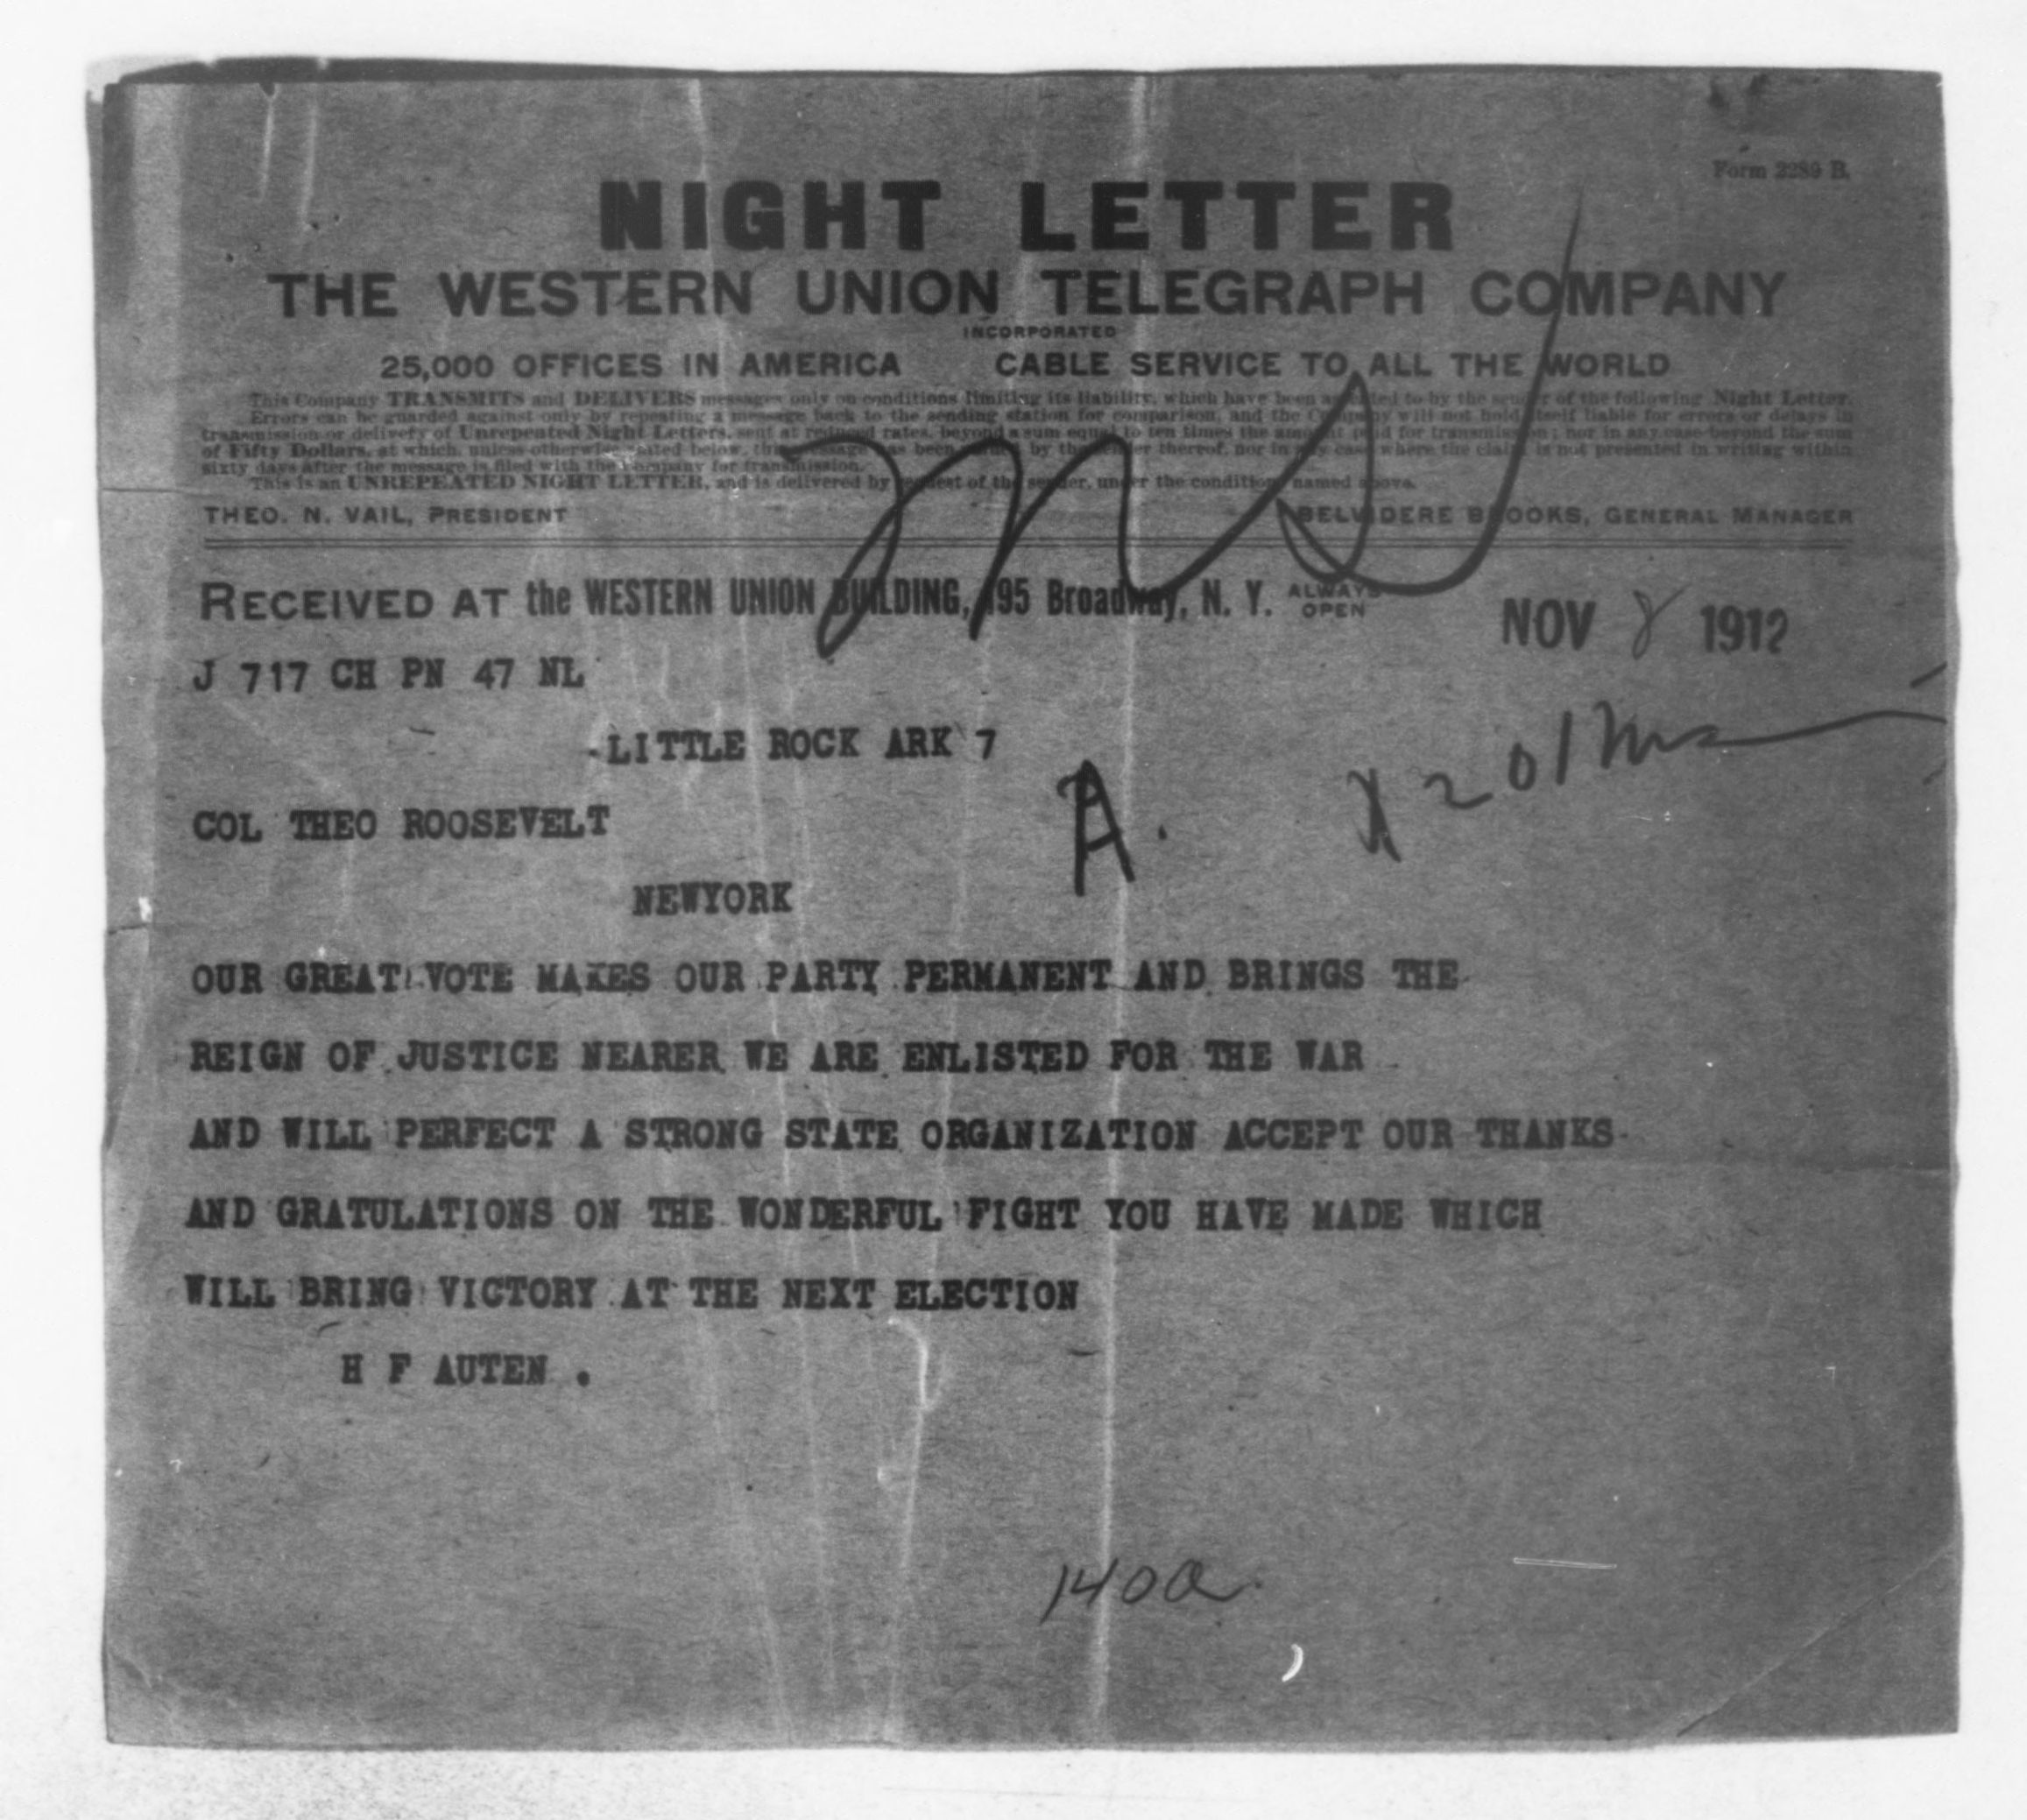 Form 2289 B.
NIGHT LETTER
THE WESTERN UNION TELEGRAPH COMPANY
INCORPORATED
25,000 OFFICES IN AMERICA CABLE SERVICE TO ALL THE WORLD
This Company TRANSMITS and DELIVERS messages only on conditions limiting its liability, which have been assented to by the sender of the following Night Letter.
Errors can be guarded against only by repeating a message back to the sending station for comparison, and the Company will not hold itself liable for errors or delays in
transmission or delivery of Unrepeated Night Letters, sent at reduced rates, beyond a sum equal to ten times the amount paid for transmission; nor in any case beyond the sum
of Fifty Dollars, at which, unless otherwise stated below, this message has been valued by the sender thereof, nor in any case where the claim is not presented in writing within
sixty days after the message is filed with the Company for transmission.
This is an UNREPEATED NIGHT LETTER, and is delivered by request of the sender, under the conditions named above.
THEO. N. VAIL, PRESIDENT BELVIDERE BROOKS, GENERAL MANAGER
RECEIVED AT the WESTERN UNION BUILDING, 195 Broadway, N. Y. ALWAYS OPEN
NOV 8 1912
J 717 CH PN 47 NL
LITTLE ROCK ARK 7
COL THEO ROOSEVELT
A.
NEWYORK
OUR GREAT VOTE MAKES OUR PARTY PERMANENT AND BRINGS THE
REIGN OF JUSTICE NEARER WE ARE ENLISTED FOR THE WAR
AND WILL PERFECT A STRONG STATE ORGANIZATION ACCEPT OUR THANKS
AND GRATULATIONS ON THE WONDERFUL FIGHT YOU HAVE MADE WHICH
WILL BRING VICTORY AT THE NEXT ELECTION
H F AUTEN .
140a